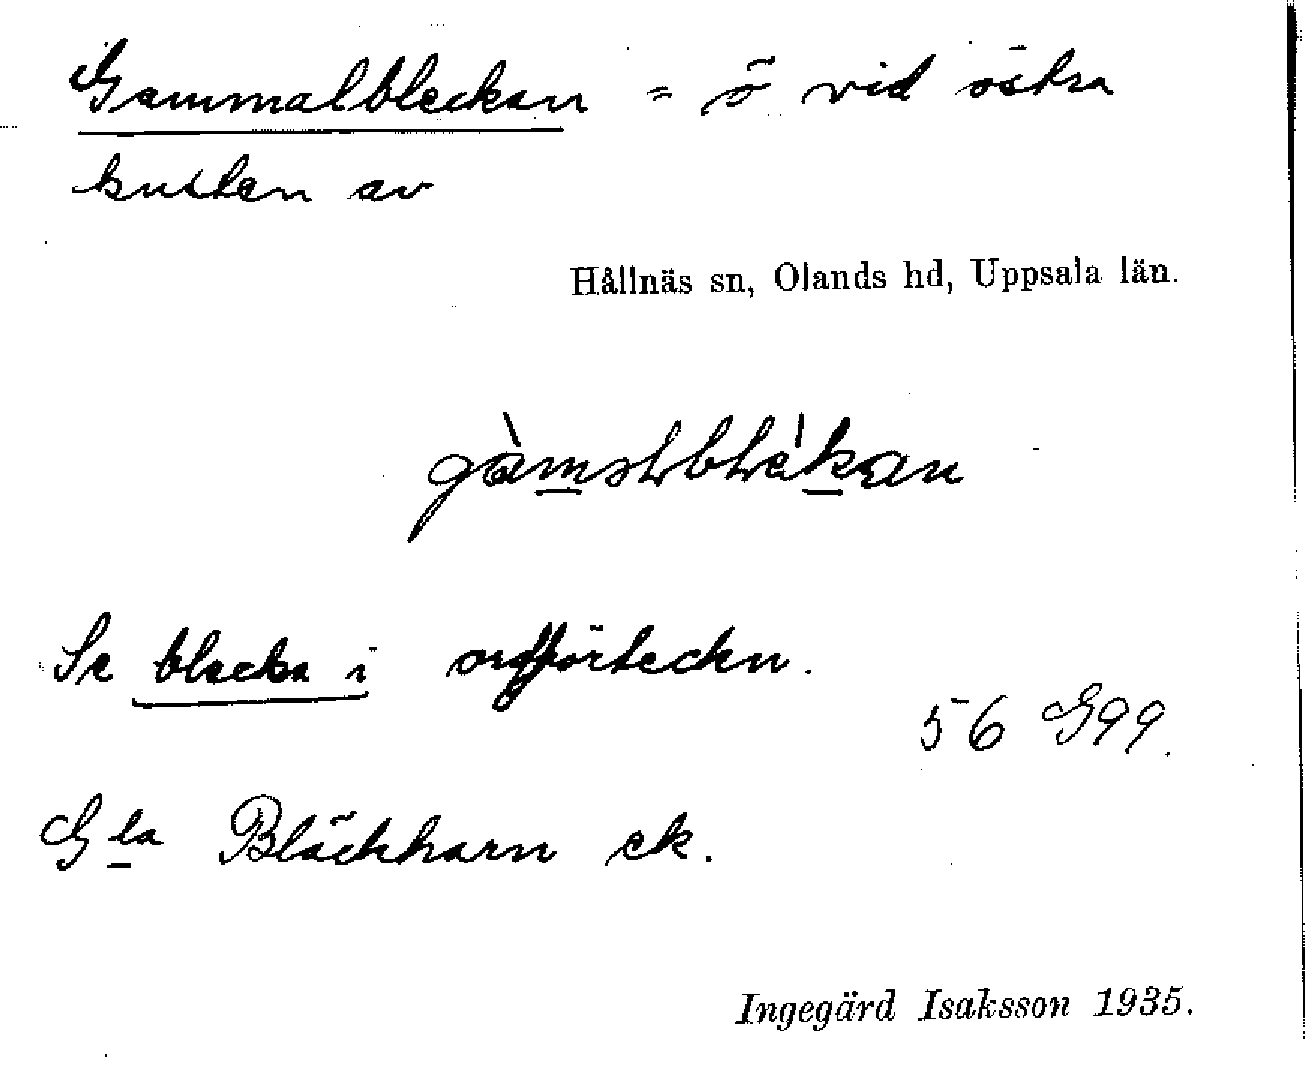 Gammalbleckan = ö vid östra
kusten av
Hållnäs sn, Olands hd, Uppsala län.
Se blecka i ordförteckn.
56 G99.
Gla Bläckharn ek.
Ingegärd Isaksson 1935.